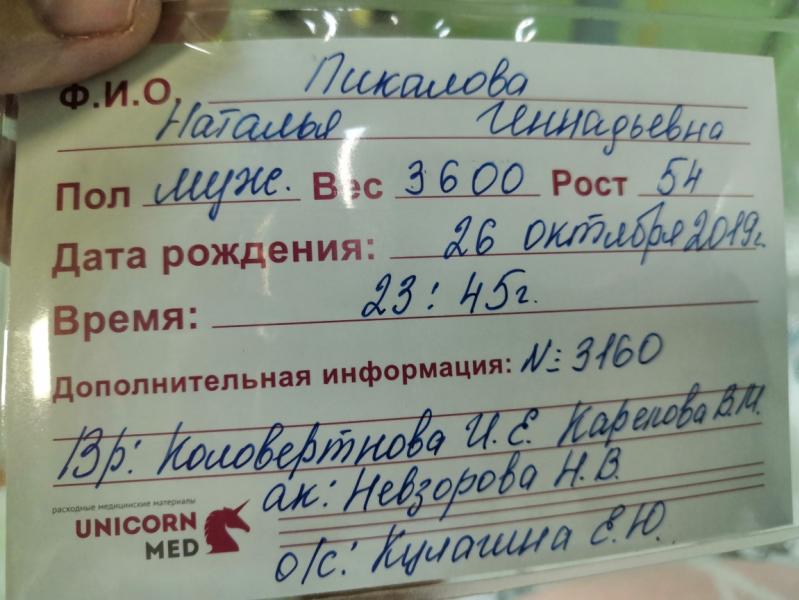 Ф.И.О. Пикалова
Наталья Геннадьевна
Пол муж. Вес 3600 Рост 54
Дата рождения: 26 октября 2019г.
Время: 23:45г.
Дополнительная информация: №3160
Вр: Коловертнова И.Е. Карепова В.М.
ак: Невзорова Н.В.
расходные медицинские материалы
UNICORN
MED
о/с: Кулагина Е.Ю.